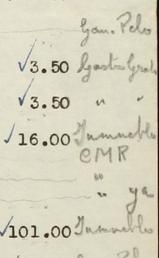 Gan. Pelo
√3.50 Gastro Grale
√3.50 " "
√16.00 Inmueble
CMR
" ya
√101.00 Inmueble